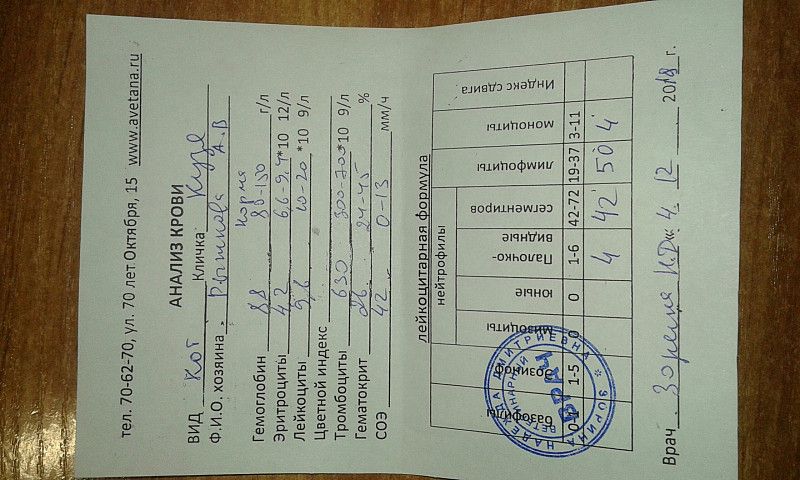 тел. 70-62-70, ул. 70 лет Октября, 15 www.avetana.ru
АНАЛИЗ КРОВИ
ВИД Кот Кличка Кузя
Ф.И.О. хозяина А.В
норма
Гемоглобин 88 80-150 г/л
Эритроциты 4,2 6,6-9,4*10 12/л
Лейкоциты 9,6 10-20 *10 9/л
Цветной индекс
Тромбоциты 630 300-700*10 9/л
Гематокрит 26 24-45 %
СОЭ 42 0-13 мм/ч
лейкоцитарная формула
нейтрофилы
базофилы Эозиноф Миэоциты Юные Палочко-видные сегментиров лимфоциты моноциты Индекс сдвига
0-1 1-5 0 0 1-6 42-72 19-37 3-11
4 42 50 4
НАДЕЖДА ДМИТРИЕВНА * ЗОРИНА
ВЕТЕРИНАРНЫЙ
ВРАЧ
Врач Зорина Н.Д « 4 12 2018 г.